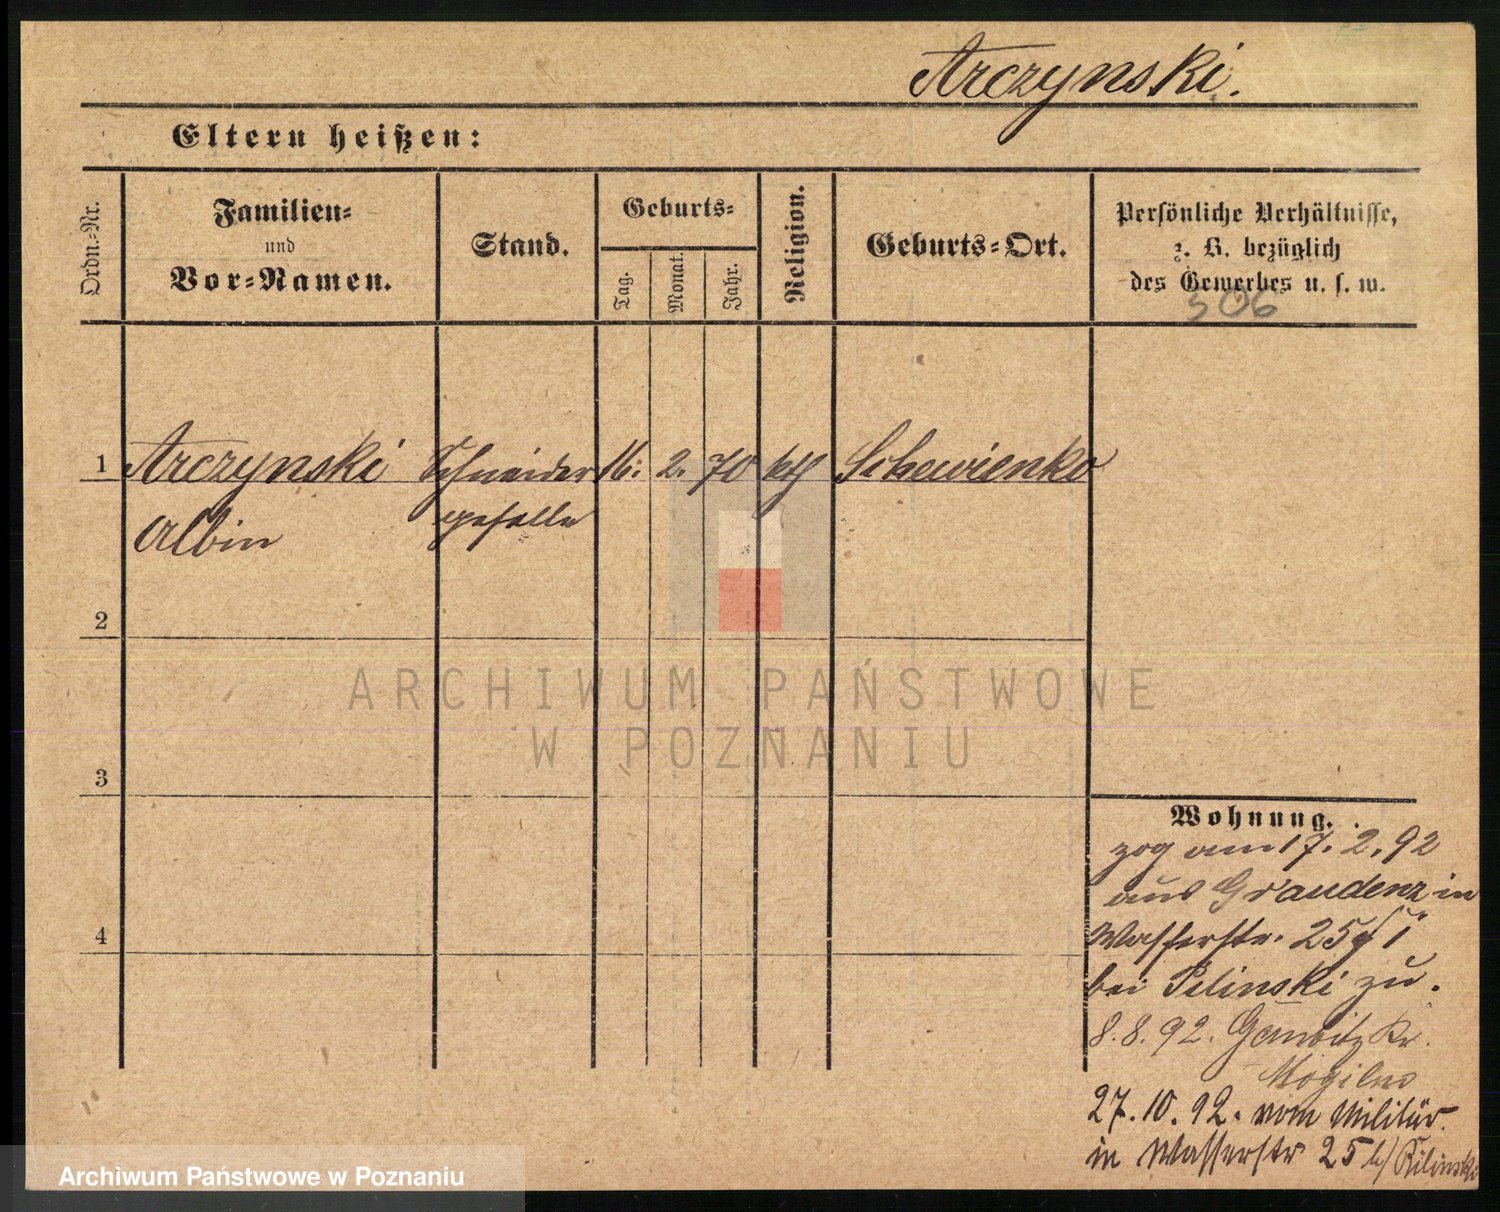 Arczynski.
Eltern heißen:
Ordn.-Nr.
Familien-
und
Vor-Namen.
Stand.
Geburts-
Tag.
Monat.
Jahr.
Religion.
Geburts-Ort.
Persönliche Verhältnisse,
z. B. bezüglich
des Gewerbes u. s. w.
506
1 Arczynski Schneider 16. 2. 70 kth
Albin geselle
2
3
4
Wohnung.
zog am 17. 2. 92
aus Graudenz in
Wasserstr. 25
bei Pilinski zu.
8. 8. 92. Gembitz Kr.
Mogilno
27. 10. 92. vom Militär
in Wasserstr 25 b/ Kilinski
ARCHIWUM PAŃSTWOWE
W POZNANIU
Archiwum Państwowe w Poznaniu